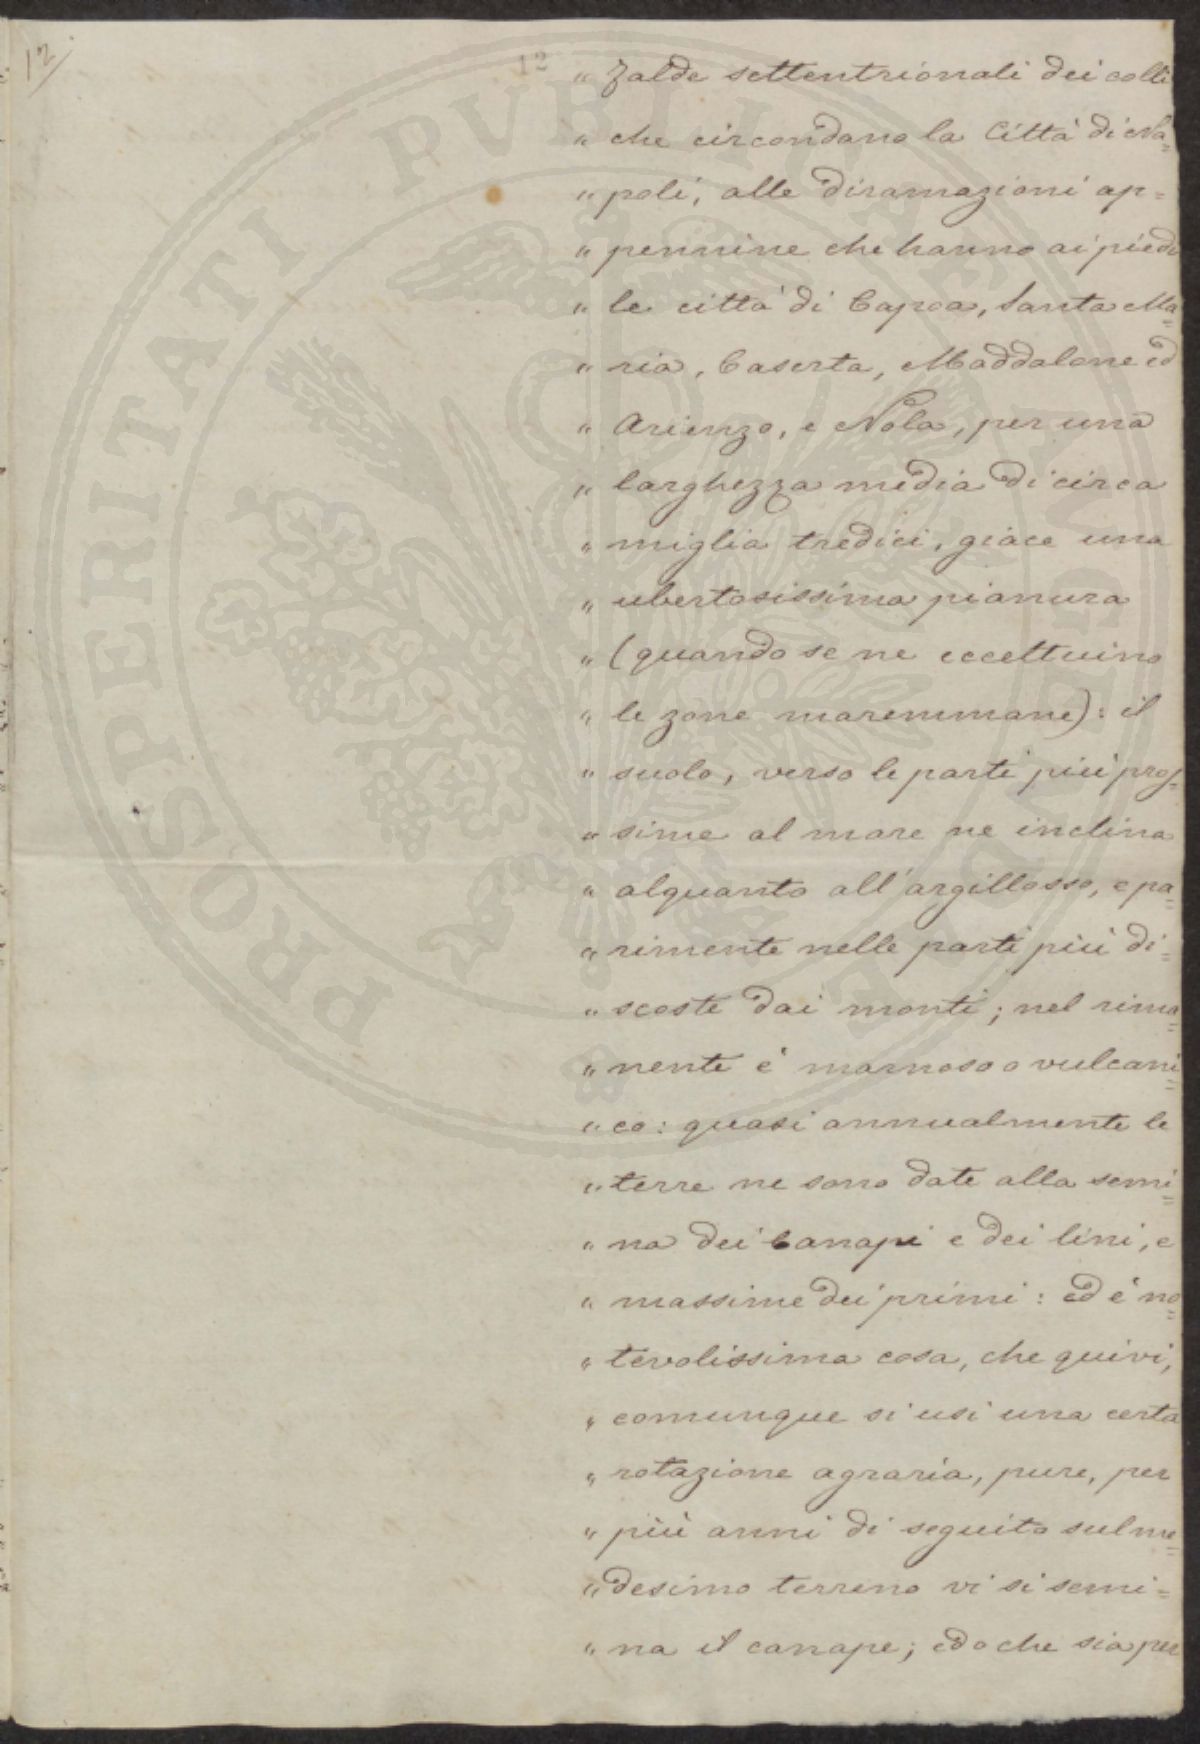 12
12
" falde settentrionali dei colli
" che circondano la Città di Na=
" poli, alle diramazioni ap=
" pennine che hanno ai piedi
" le città di Capoa, Santa Ma=
" ria, Caserta, Maddalone ed
" Arienzo, e Nola, per una
" larghezza media di circa
" miglia tredici, giace una
" ubertosissima pianura
" (quando se ne eccettuino
" le zone maremmane): il
" suolo, verso le parti più pros=
" sime al mare ne inclina
" alquanto all'argilloso, e pa=
" rimente nelle parti più di=
" scoste dai monti; nel rima=
" nente é marnoso o vulcani=
" co: quasi annualmente le
" terre ne sono date alla semi=
" na dei Canapi e dei lini, e
" massime dei primi: ed é no=
" tevolissima cosa, che quivi,
" comunque si usi una certa
" rotazione agraria, pure, per
" più anni di seguito sul me=
" desimo terreno vi si semi=
" na il canape; ed o che sia per
PROSPERITATI PVBLICAE AVGENDAE